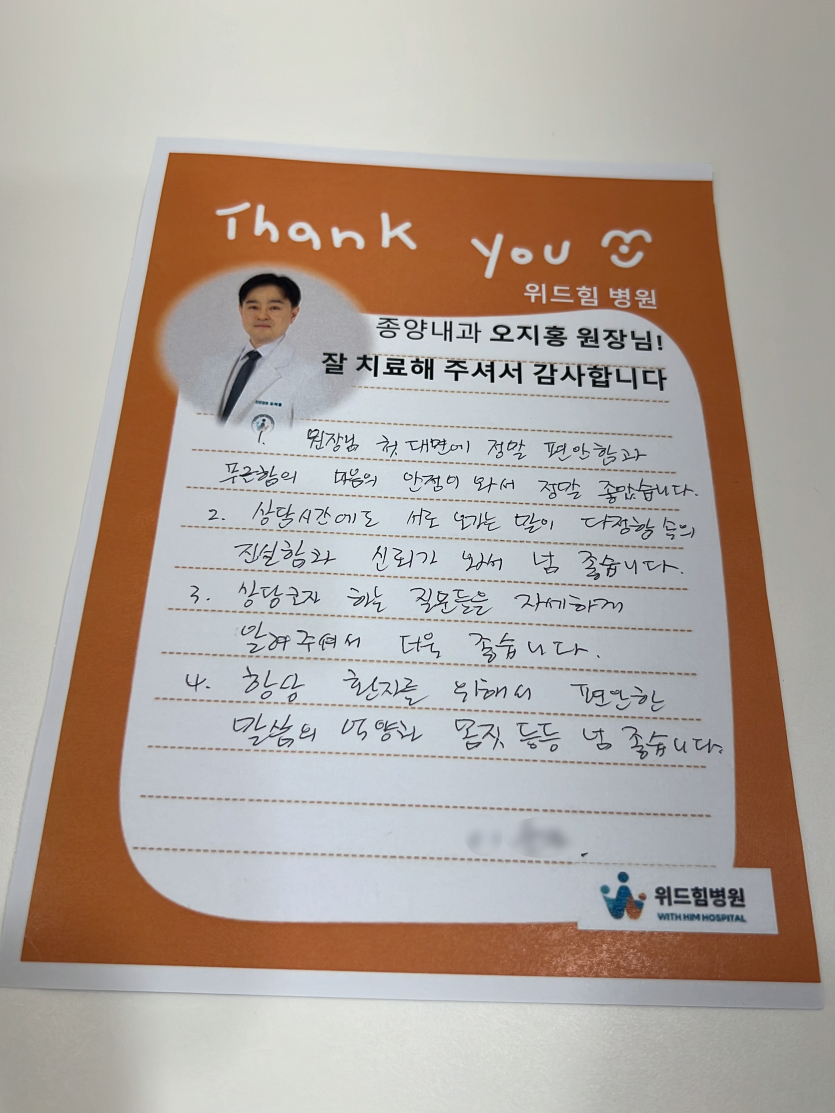 Thank you
위드힘 병원
종양내과 오지홍 원장님!
잘 치료해 주셔서 감사합니다
1. 원장님 첫 대면에 정말 편안함과
푸근함의 마음의 안정이 와서 정말 좋았습니다.
2. 상담시간에도 서로 오가는 말이 다정함 속의
진실함과 신뢰가 와서 넘 좋습니다.
3. 상담코자 하는 질문들을 자세하게
알려주셔서 더욱 좋습니다.
4. 항상 환자를 위해서 편안한
말씀의 억양과 몸짓 등등 넘 좋습니다.
위드힘병원
WITH HIM HOSPITAL